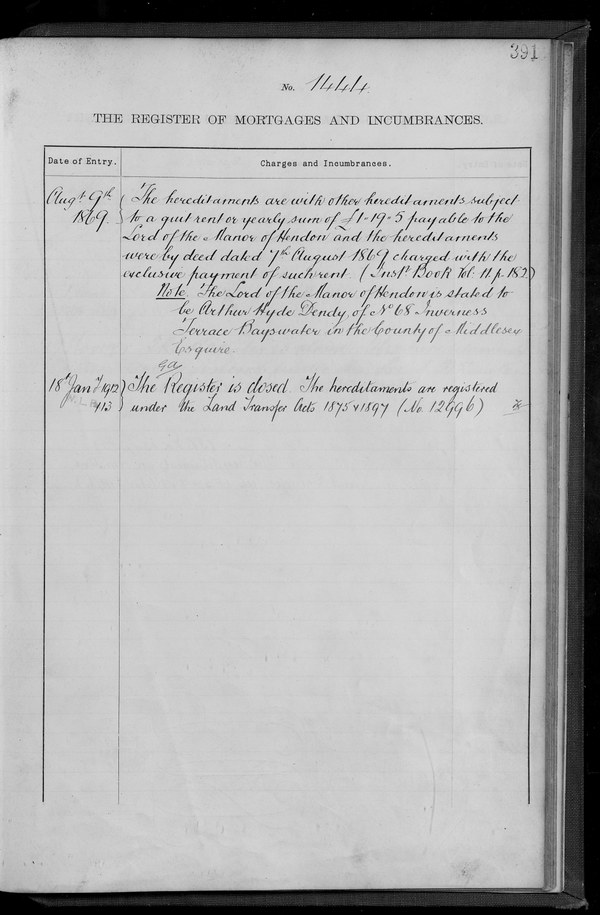 391
No. 1444.
THE REGISTER OF MORTGAGES AND INCUMBRANCES.
Date of Entry.
Charges and Incumbrances.
Augt 9th 1869.
The hereditaments are with other hereditaments subject
to a quit rent or yearly sum of £1-19-5 payable to the
Lord of the Manor of Hendon and the hereditaments
were by deed dated 7th August 1869 charged with the
exclusive payment of such rent. (Inst Book Vol. 11 p. 182)
Note. The Lord of the Manor of Hendon is stated to
be Arthur Hyde Dendy, of No 68 Inverness
Terrace Bayswater in the County of Middlesex
Esquire.
18 Jany 1912
113
The Register is closed. The hereditaments are registered
under the Land Transfer Acts 1875 & 1897 (No. 12996)